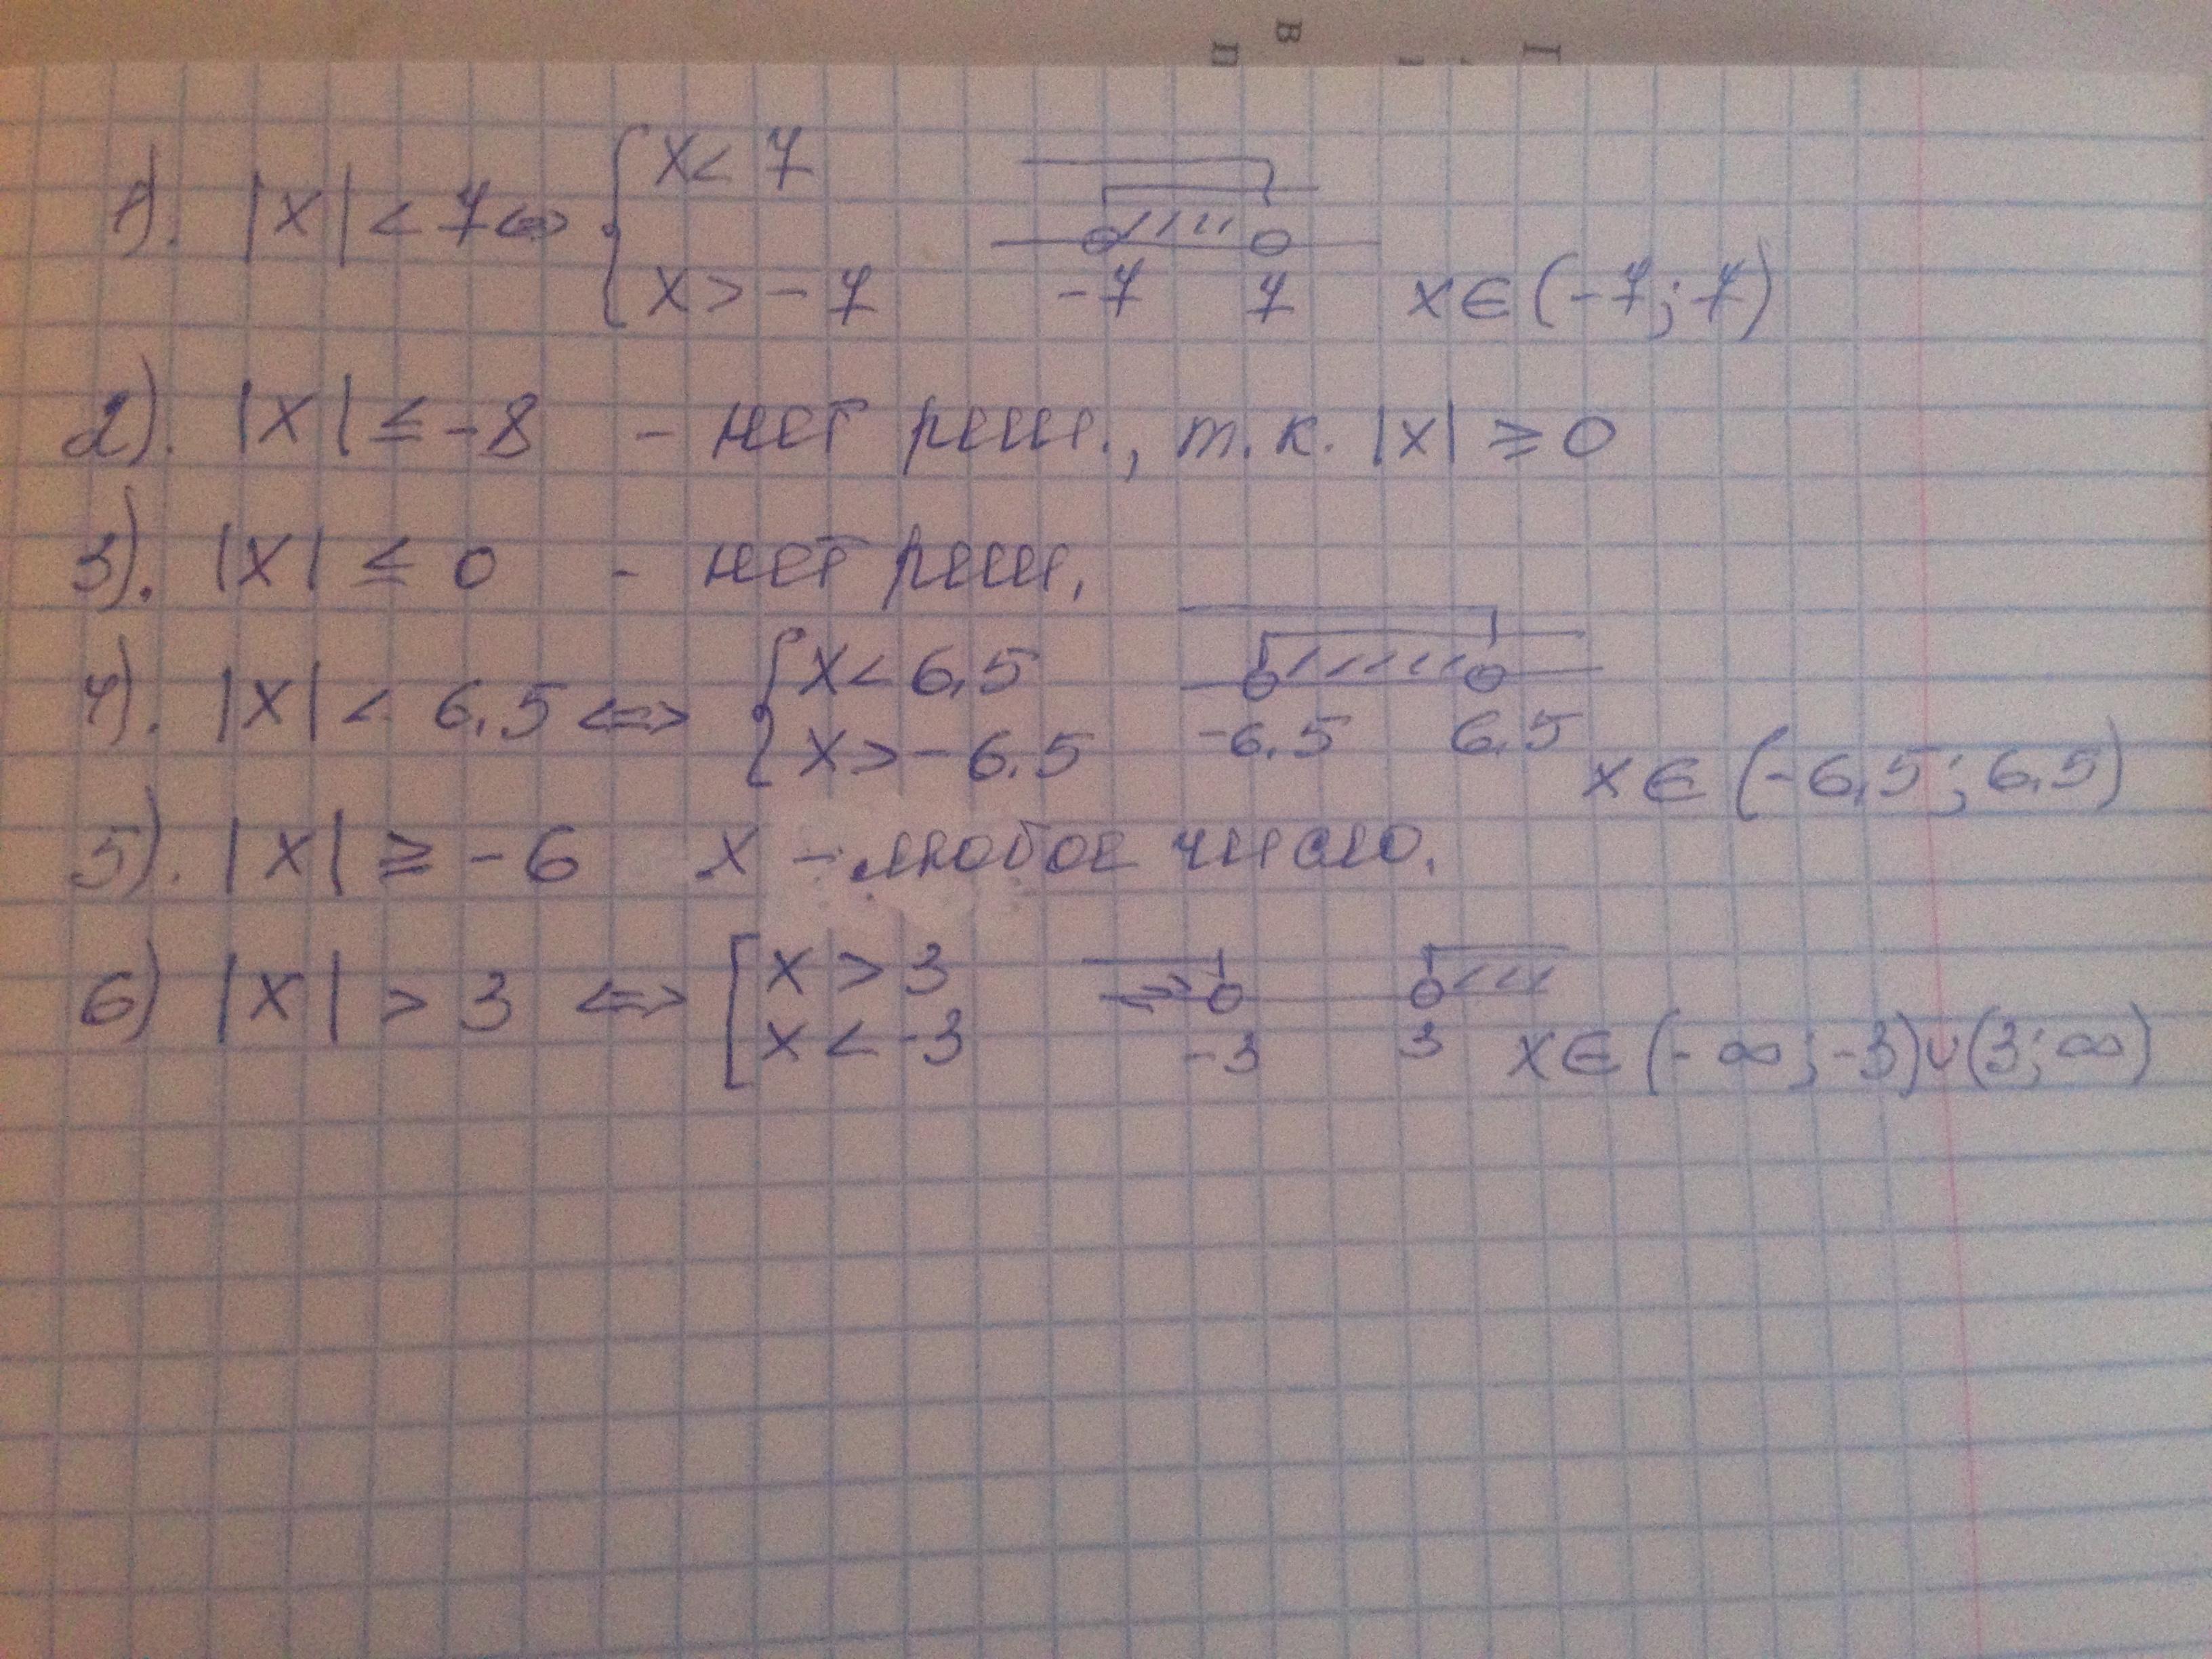 1). |x| < 7 <=> { x < 7
x > -7
-7 7 x ∈ (-7; 7)
2). |x| ≤ -8 - нет реш., т.к. |x| ≥ 0
3). |x| ≤ 0 - нет реш.
4). |x| < 6,5 <=> { x < 6,5
x > -6,5
-6,5 6,5
x ∈ (-6,5; 6,5)
5). |x| ≥ -6 x - любое число.
6) |x| > 3 <=> [ x > 3
x < -3
-3 3 x ∈ (-∞; -3) ∪ (3; ∞)